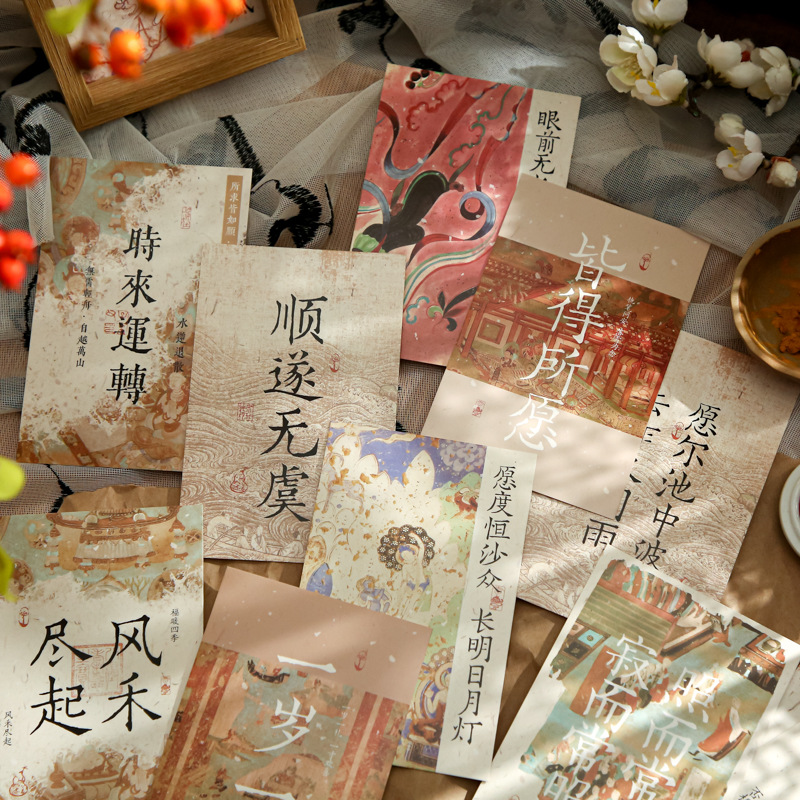 所求皆如願
時來運轉
自越萬山
顺遂无虞
眼前无
皆得所愿
愿尔池中波
雨
愿度恒沙众
长明日月灯
风禾
尽起
福暖四季
风禾尽起
一岁一
照而
寂而常照